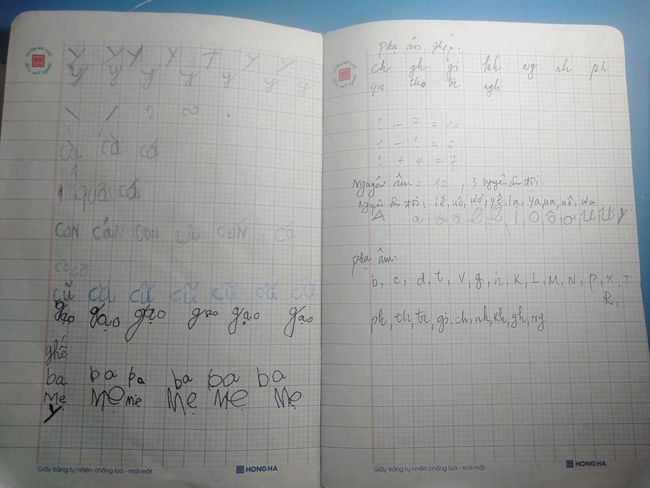 y y y y y y
y y y y y y y
cà cà cá
quả cá
con cá con cá con cá
cũ cũ cũ cũ cũ cũ cũ
gạo gạo gạo gạo gạo gạo
ghế
ba ba ba ba ba ba
Mẹ Mẹ Mẹ Mẹ Mẹ Mẹ
y
Giấy trắng tự nhiên chống loá - mỏi mắt HONG HA
Phụ âm ghép.
ch gh gi kh ng nh ph
qu th tr ngh
? + 4 = 7
nguyên âm: 12, 3 nguyên âm đôi.
nguyên âm đôi: iê, uô, ươ, yê, ia, ya, ua, uô, ưa
phụ âm:
b, c, d, t, v, g, h, K, L, M, N, P, X, T
R,
ph, th, tr, gi, ch, nh, kh, gh, ng
Giấy trắng tự nhiên chống loá - mỏi mắt HONG HA